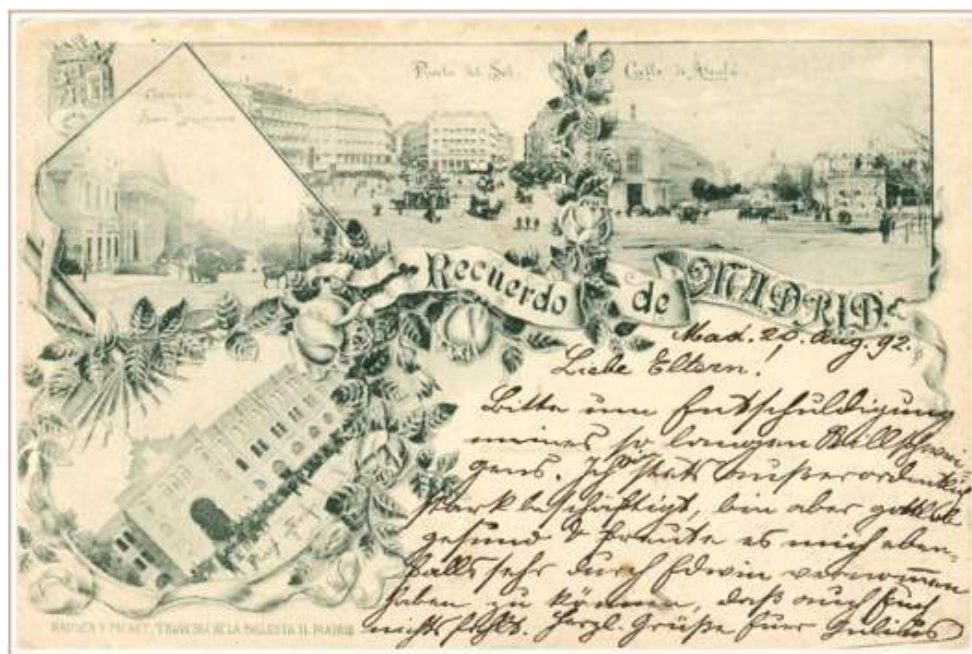 Puerta del Sol.
Calle de Alcalá
San Jerónimo
Recuerdo de MADRID.
Mad. 20. Aug. 92.
Liebe Eltern!
Bitte um Entschuldigung
meines so langen Stillschwei-
gens. Ich stets außerordentlich
stark beschäftigt, bin aber gottlob
gesund & freute es mich eben-
falls sehr durch Edwin vernommen
haben zu können, daß auch Euch
nichts fehlt. Herzl. Grüße Euer Julius
HAUSER Y MENET, TRAVESIA DE LA BALLESTA 11. MADRID